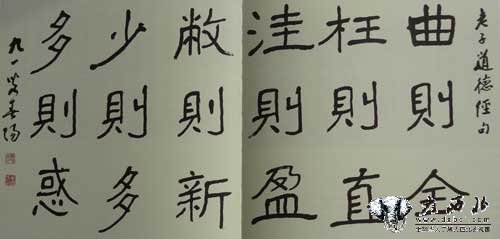 老子道德經句
曲則全
枉則直
洼則盈
敝則新
少則多
多則惑
九一